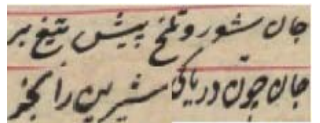 جان شور و تلخ پیش تیغ بر
جان چون دریای شیرین را بخر